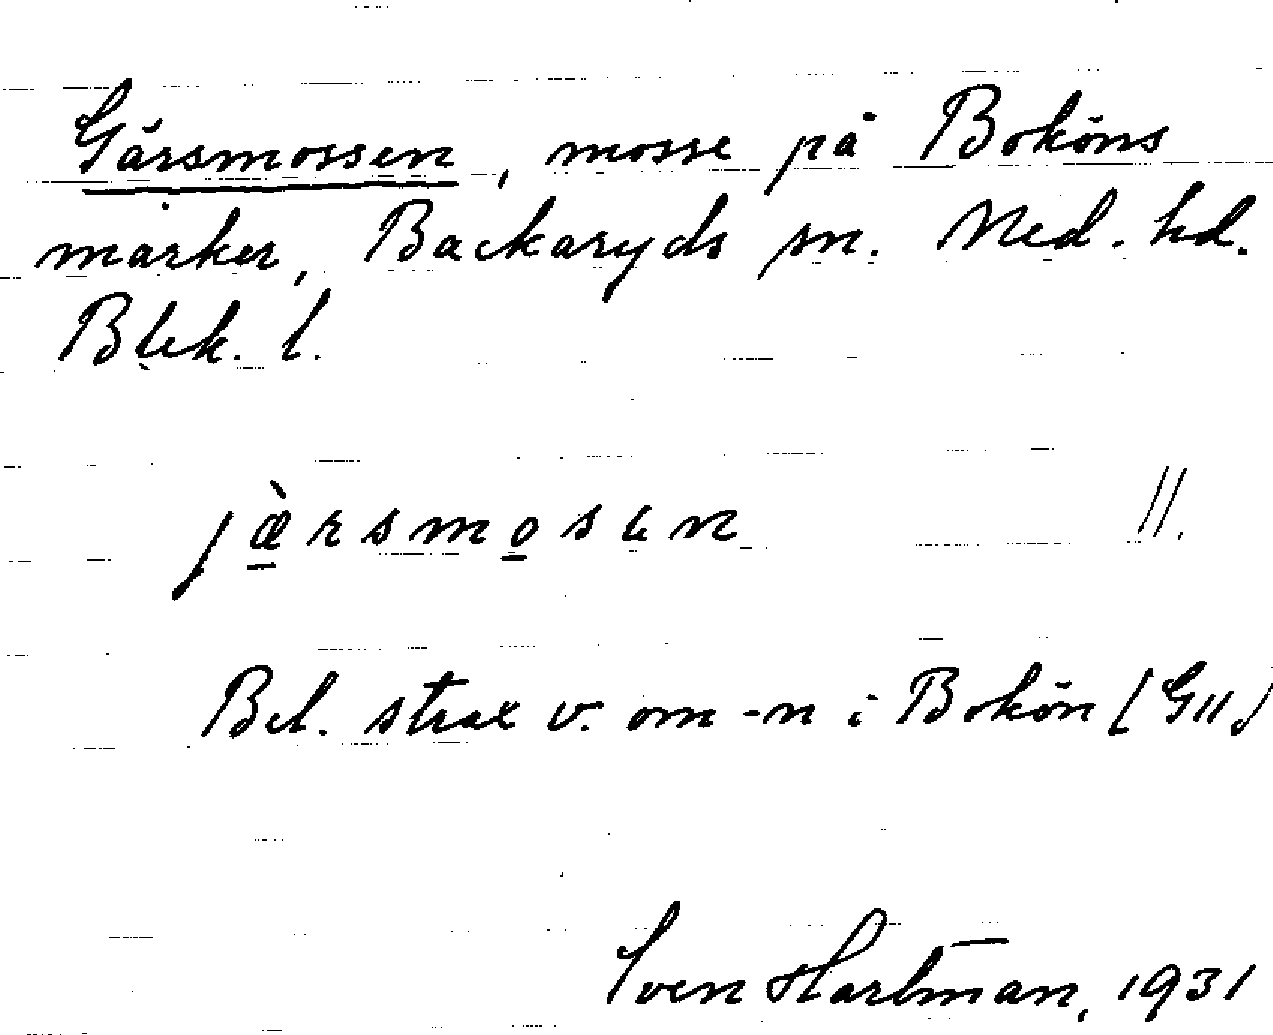 Gärsmossen, mosse på Boköns
marker, Backaryds sn. Med. hd.
Blek. l.
jæ̀rsmosen 11.
Bel. strax v. om -n i Bokön (G11)
Sven Hartman, 1931